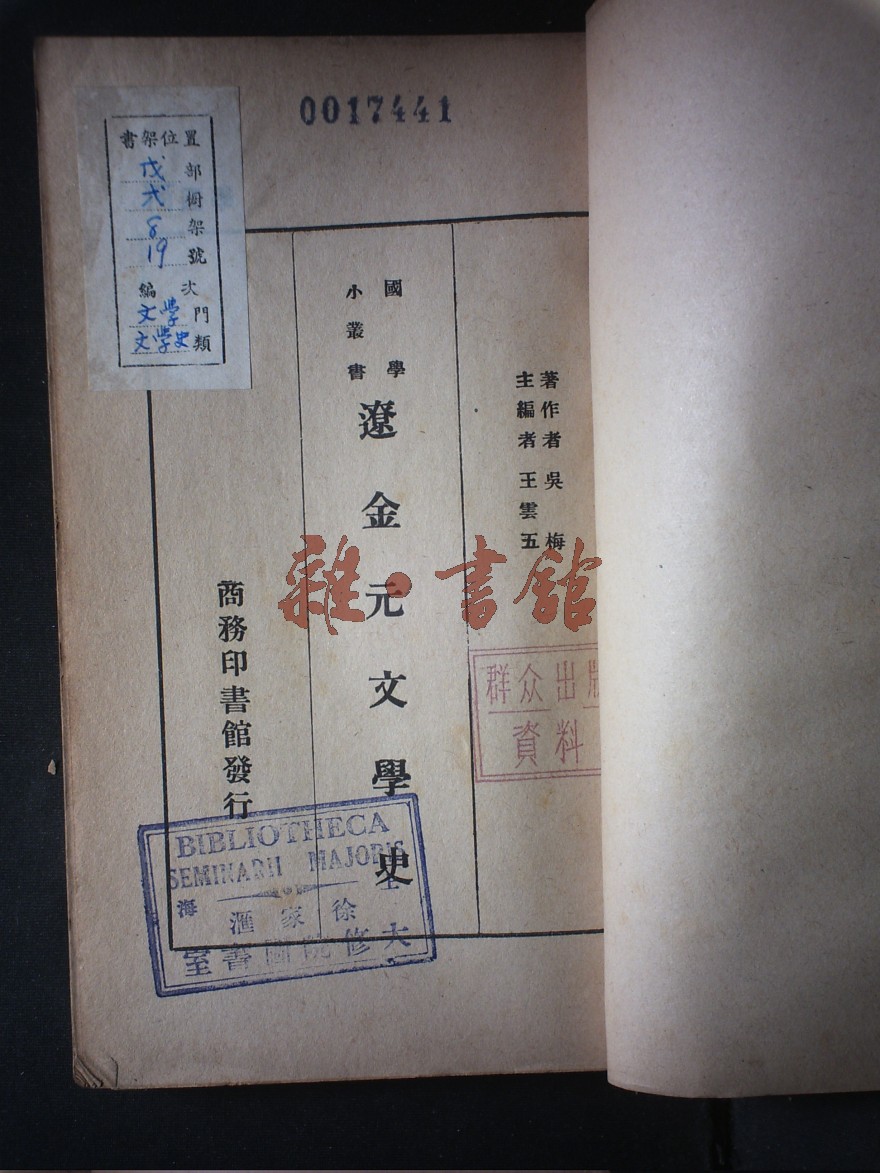 0017441
置位架書
部 戊
樹 弍
架 8
號 19
次編
門 文学
類 文学史
著作者 吳梅
主編者 王雲五
國學
小叢書
遼金元文學史
商務印書館發行
雜·書館
群众出版
資料
BIBLIOTHECA
SEMINARII MAJORIS
上海
徐家滙
大修院圖書室